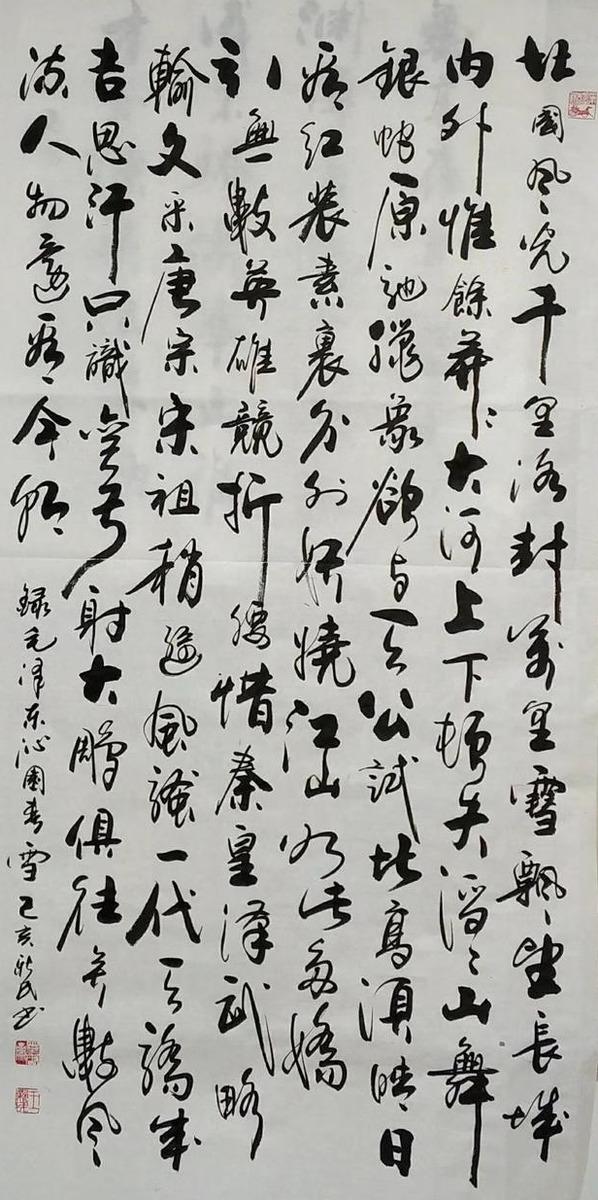 北國风光千里冰封萬里雪飄望長城
内外惟餘莽々大河上下頓失滔々山舞
銀蛇原馳臘象欲与天公試比高須晴日
看红裝素裹分外妖嬈江山如此多嬌
引無數英雄競折腰惜秦皇漢武略
輸文采唐宗宋祖稍遜風騷一代天驕成
吉思汗只識彎弓射大鵰俱往矣數风
流人物還看今朝
錄毛澤东沁園春雪 己亥 民书